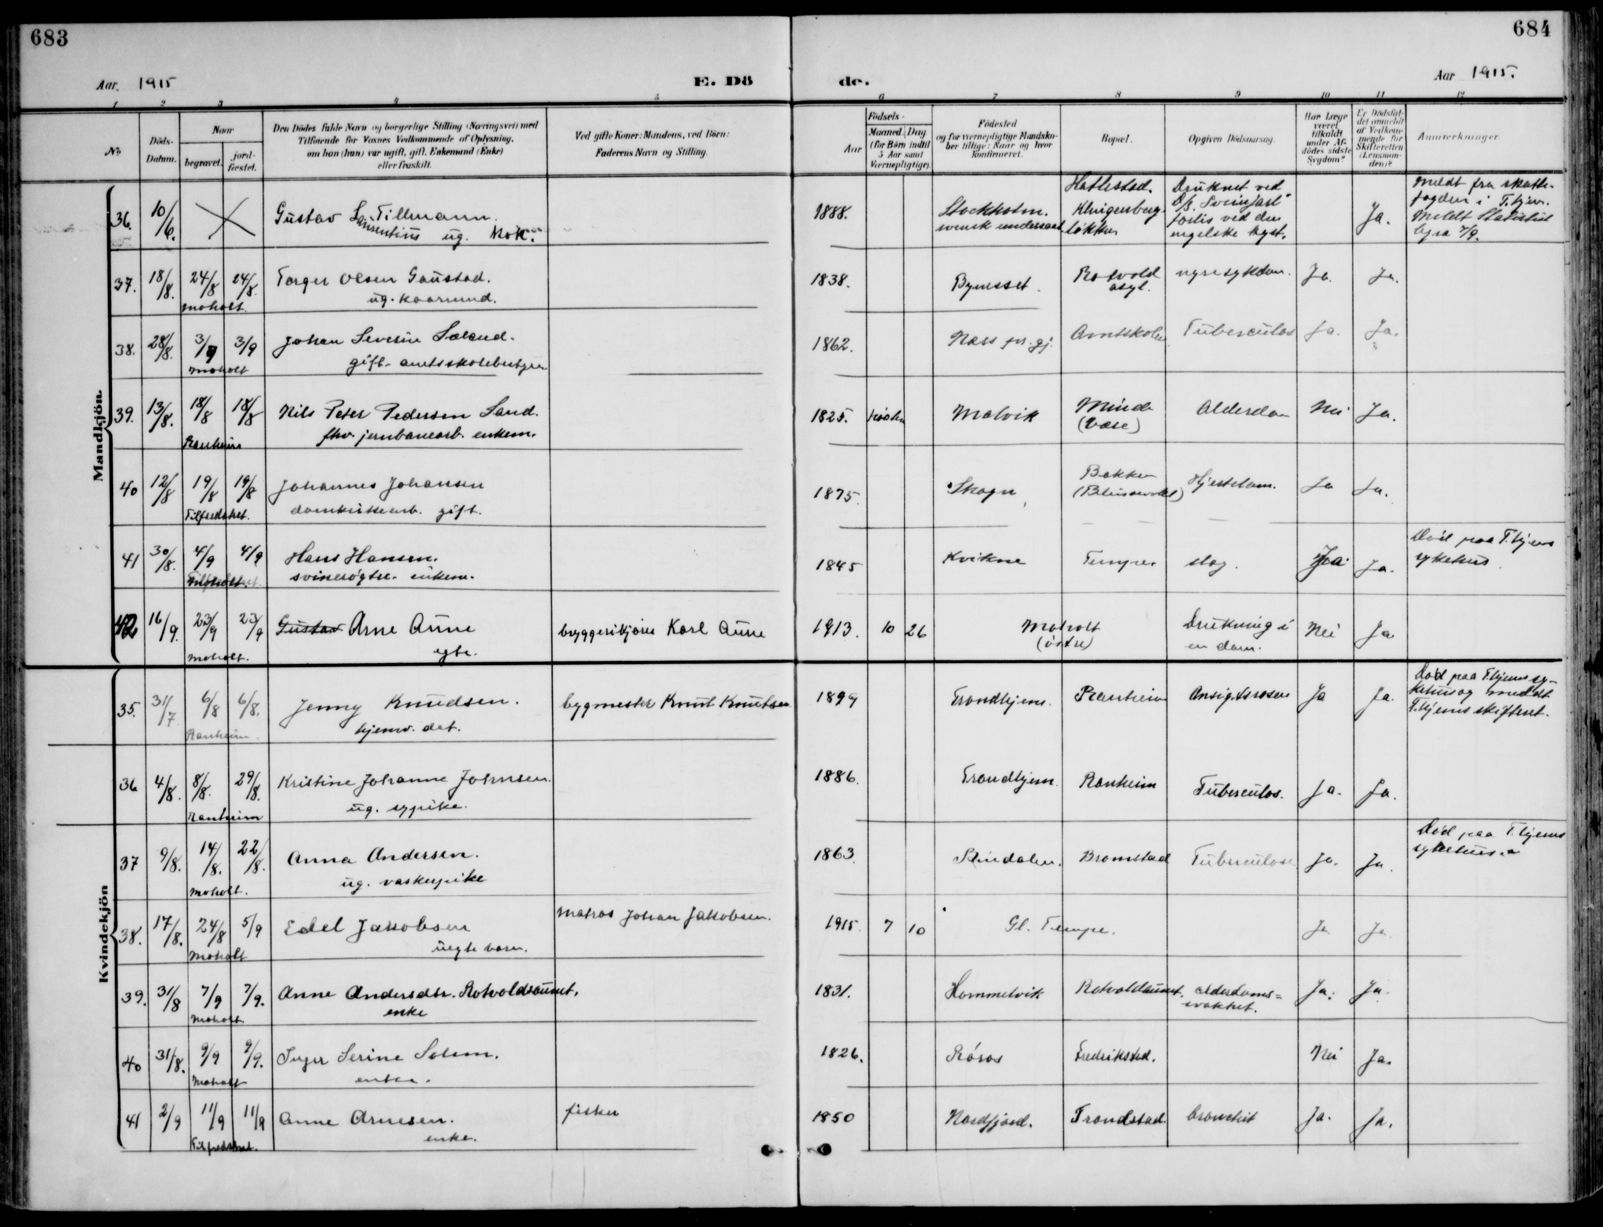 683
684
Aar 1915
E. Dö
de.
Aar 1915.
1 2 3 4 5 6 7 8 9 10 11 12
No.
Döds-Datum.
Naar
begravet.
jord-festet.
Den Dödes fulde Navn og borgerlige Stilling (Næringsvei) med
Tilföiende for Voxnes Vedkommende af Oplysning,
om han (hun) var ugift, gift, Enkemand (Enke)
eller fraskilt.
Ved gifte Koner: Mandens, ved Börn:
Faderens Navn og Stilling.
Födsels-
Aar
Maaned. Dag
(for Börn indtil
5 Aar samt
Værnepligtige).
Födested
og for værnepligtige Mandska-
ber tillige: Naar og hvor
konfirmeret.
Bopæl.
Opgiven Dödsaarsag.
Har Læge
været
tilkaldt
under Af-
dödes sidste
Sygdom?
Er Dödsfal-
det anmeldt
af Vedkom-
mende for
Skifteretten
(Lensman-
den)?
Anmærkninger.
Mandkjön.
36. 10/6. Gustav Laurentius Tillmann. ug. kok. 1888. Stockholm. svensk undersaat Hatlestad. Klingenberg- Druknet ved D/S "Sveinjarl" forlis ved den engelske kyst. Ja. Meldt fra skatte-fogden i T.hjem. Meldt
37. 18/8. 24/8 24/8. Moholt Torger Olsen Gaustad. ug. 1838. Bynesset. Rotvold asyl. nyresykdom. Ja. Ja.
38. 28/8. 3/9 3/9 Moholt Johan Severin Sæland. gift. amtsskolebestyrer 1862. Næss pr.gj. Amtskolen Tuberculos Ja. Ja.
39. 13/8. 18/8 18/8 Ranheim Nils Peter Pedersen Sand. fhv. jernbanearb. enkem. 1825. Malvik Minde (Være) Alderdom Nei Ja.
40 12/8 19/8 19/8 Tilfredshet. Johannes Johansen domkirkearb. gift. 1875. Skogn Bakken Hjertelam. Ja Ja.
41 30/8. 4/9 4/9 Moholt Hans Hansen. svinerøgter. enkem. 1845 Kvikne Tempe slag. Ja Ja. Död paa T.hjems sykehus
42 16/9. 23/9 23/9 Moholt. Gustav Arne Aune egte. bryggerikjører Karl Aune 1913. 10 26 Moholt (østre) Drukning i en dam. Nei Ja
Kvindekjön
35. 31/7 6/8 6/8. Ranheim. Jenny Knudsen. hjemv. dat. bygmester Knut Knutsen 1899 Trondhjem. Ranheim Ansigtsrosen Ja Ja. Död paa T.hjems sy-kehus og meldt T.hjems skifteret.
36 4/8. 8/8. 29/8. Ranheim Kristine Johanne Johnsen. ug. sypike. 1886. Trondhjem. Ranheim Tuberculos. Ja. Ja.
37 9/8. 14/8. 22/8. Moholt. Anna Andersen. ug. vaskepike 1863. Stindalen. Bromstad Tuberculose Ja. Ja. Död paa T.hjems sykehus.
38. 17/8. 24/8 5/9 Moholt Edel Jakobsen uegte barn. matros Johan Jakobsen. 1915. 7 10 Gl. Tempe. Ja Ja
39. 31/8 7/9 7/9. Moholt Anne Andersdtr. Rotvoldaunet. enke 1831. Hommelvik Rotvoldaunet. alderdoms-svakhet. Ja. Ja.
40 31/8. 9/9 9/9. Moholt Inger Serine Solem. enke. 1826. Röros Fredrikstad. Nei Ja.
41 2/9 11/9 11/9 Tilfredshet. Anne Arnesen. enke. fisker 1850 Nordfjord. Trondstad. bronchit Ja. Ja.